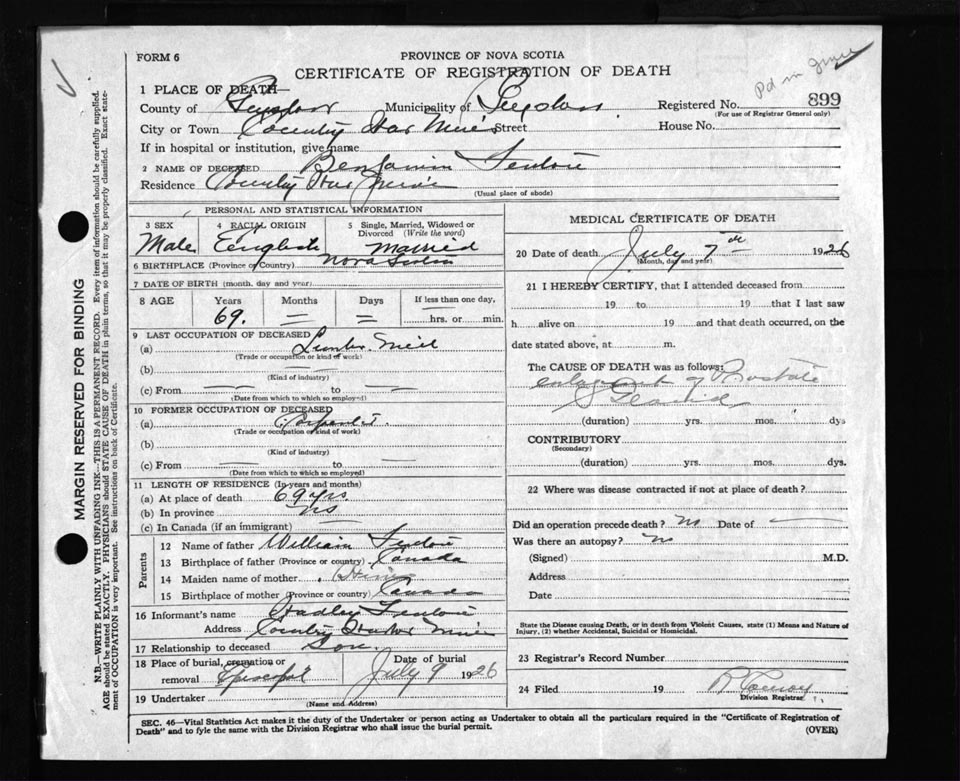 FORM 6
PROVINCE OF NOVA SCOTIA
CERTIFICATE OF REGISTRATION OF DEATH
Pd in
1 PLACE OF DEATH—
County of Municipality of Registered No. 899
(For use of Registrar General only)
City or Town Country Har Street House No.
If in hospital or institution, give name
2 NAME OF DECEASED Benjamin Fenton
Residence Country Har
(Usual place of abode)
PERSONAL AND STATISTICAL INFORMATION
3 SEX Male
4 RACIAL ORIGIN English
5 Single, Married, Widowed or Divorced (Write the word) Married
6 BIRTHPLACE (Province or Country) Nova Scotia
7 DATE OF BIRTH (month, day and year)
8 AGE Years Months Days If less than one day,
69. — = hrs. or min.
9 LAST OCCUPATION OF DECEASED
(a) Lumber
(Trade or occupation or kind of work)
(b)
(Kind of industry)
(c) From — to —
(Date from which to which so employed)
10 FORMER OCCUPATION OF DECEASED
(a) Carpenter
(Trade or occupation or kind of work)
(b)
(Kind of industry)
(c) From — to —
(Date from which to which so employed)
11 LENGTH OF RESIDENCE (In years and months)
(a) At place of death 69 yrs.
(b) In province
(c) In Canada (if an immigrant) —
Parents
12 Name of father William Fenton
13 Birthplace of father (Province or country) Canada
14 Maiden name of mother
15 Birthplace of mother (Province or country) Canada
16 Informant's name Hadley Fenton
Address Country Harbor
17 Relationship to deceased Son
18 Place of burial, cremation or removal Episcopal Date of burial July 9 1926
19 Undertaker
(Name and Address)
MEDICAL CERTIFICATE OF DEATH
20 Date of death July 7th 1926
(Month, day and year)
21 I HEREBY CERTIFY, that I attended deceased from
19 to 19 that I last saw
h alive on 19 and that death occurred, on the
date stated above, at m.
The CAUSE OF DEATH was as follows:
enlargement of Prostate
Gland
(duration) yrs. mos. dys
CONTRIBUTORY
(Secondary)
(duration) yrs. mos. dys.
22 Where was disease contracted if not at place of death?
Did an operation precede death? No Date of —
Was there an autopsy? No
(Signed) M.D.
Address
Date
State the Disease causing Death, or in death from Violent Causes, state (1) Means and Nature of
Injury, (2) whether Accidental, Suicidal or Homicidal.
23 Registrar's Record Number
24 Filed 19
Division Registrar
SEC. 46—Vital Stathtics Act makes it the duty of the Undertaker or person acting as Undertaker to obtain all the particulars required in the "Certificate of Registration of
Death" and to fyle the same with the Division Registrar who shall issue the burial permit. (OVER)
MARGIN RESERVED FOR BINDING
N.B.—WRITE PLAINLY WITH UNFADING INK—THIS IS A PERMANENT RECORD. Every item of information should be carefully supplied.
AGE should be stated EXACTLY. PHYSICIANS should STATE CAUSE OF DEATH in plain terms, so that it may be properly classified. Exact state-
ment of OCCUPATION is very important. See instructions on back of Certificate.